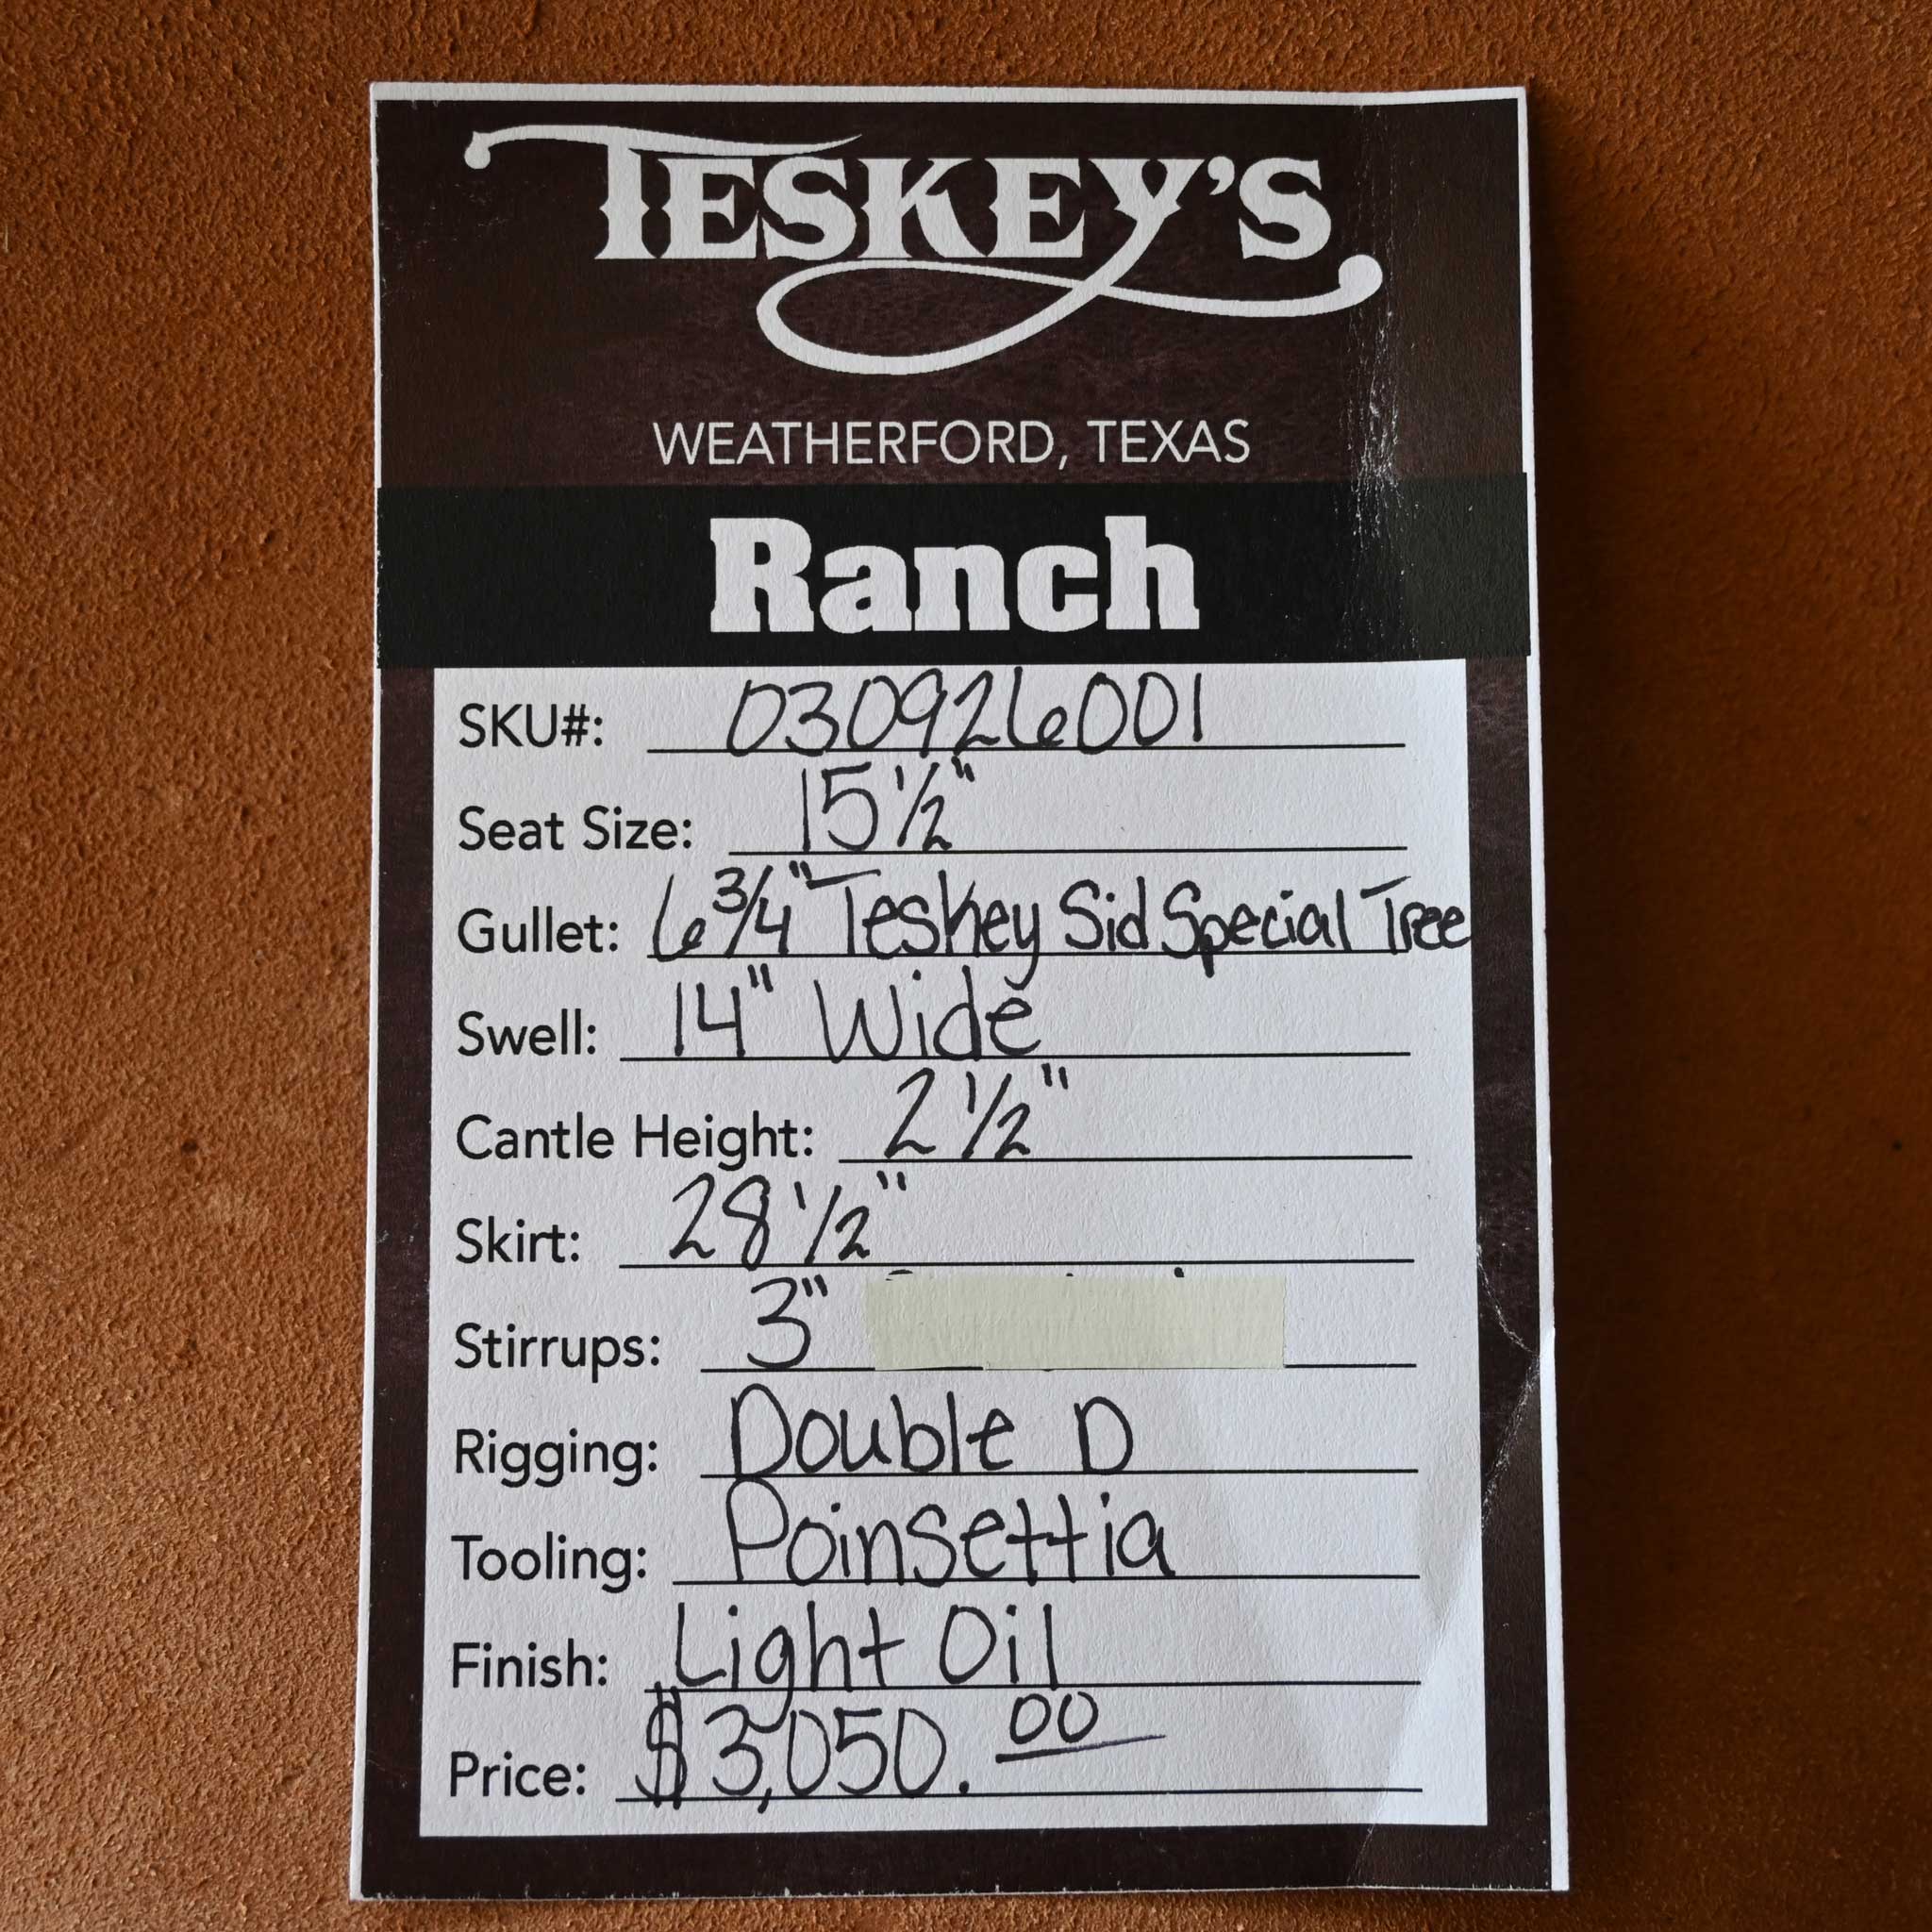 TESKEY'S
WEATHERFORD, TEXAS
Ranch
SKU#: 030926001
Seat Size: 15 1/2"
Gullet: 6 3/4" Teskey Sid Special Tree
Swell: 14" Wide
Cantle Height: 2 1/2"
Skirt: 28 1/2"
Stirrups: 3"
Rigging: Double D
Tooling: Poinsettia
Finish: Light Oil
Price: $3,050.00